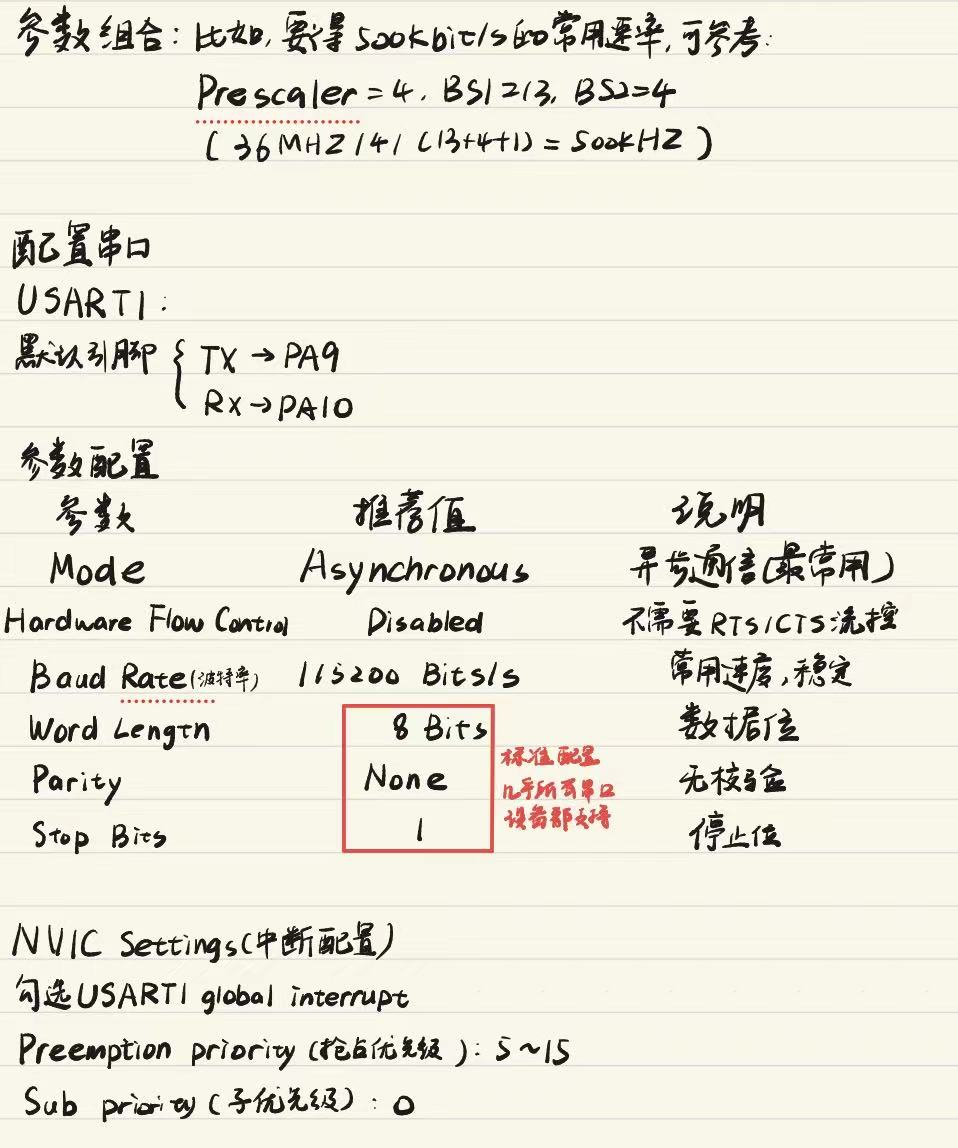 参数组合：比如，要得500kbit/s的常用速率，可参考：
Prescaler = 4，BS1=13，BS2=4
( 36MHZ / 4 / (13+4+1) = 500kHZ )
配置串口
USART1：
默认引脚 { TX → PA9
RX → PA10
参数配置
参数 推荐值 说明
Mode Asynchronous 异步通信(最常用)
Hardware Flow Control Disabled 不需要RTS/CTS流控
Baud Rate(波特率) 115200 Bits/s 常用速度,稳定
Word Length 8 Bits 数据位
标准配置
Parity None 无校验
几乎所有串口
设备都支持
Stop Bits 1 停止位
NVIC Settings(中断配置)
勾选USART1 global interrupt
Preemption priority (抢占优先级)：5~15
Sub priority (子优先级)：0